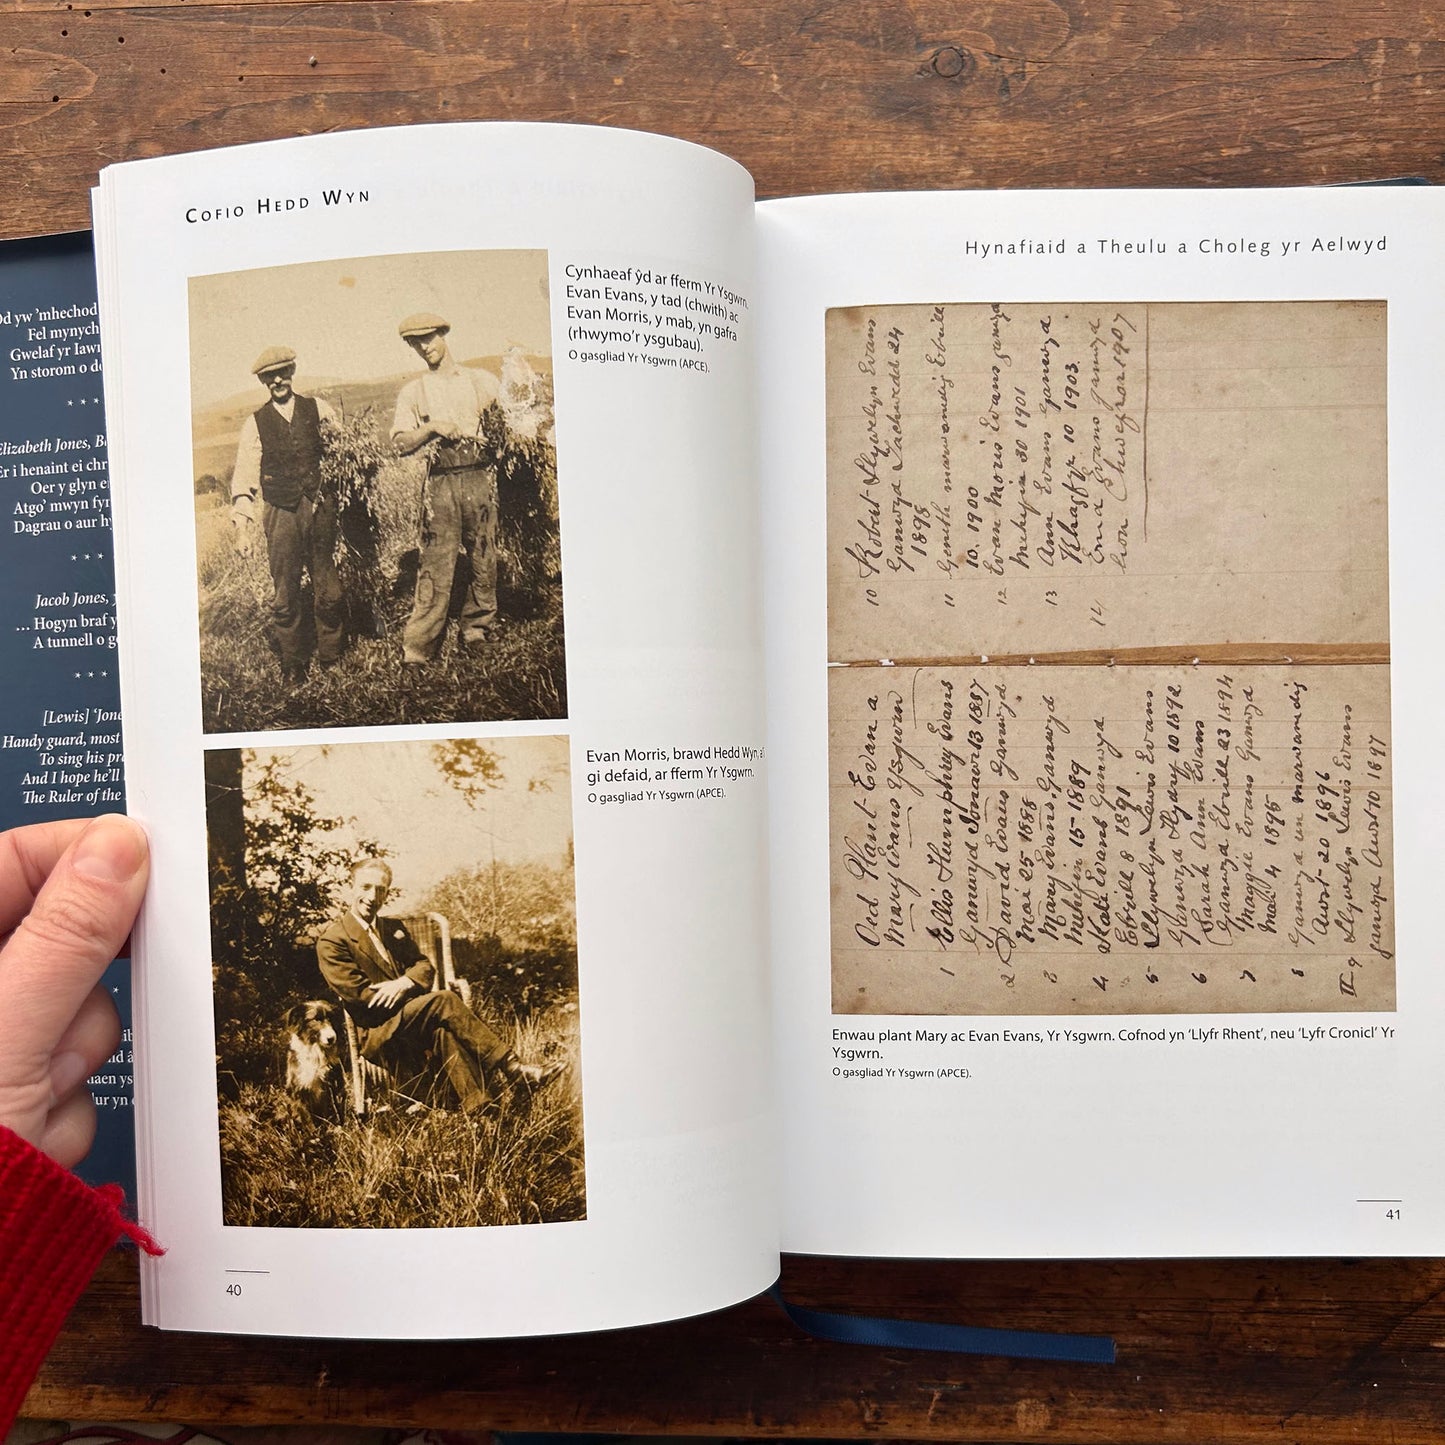 Fel mynych
Gwelaf yr Iawn
Yn storom o
* * *
Elizabeth Jones,
Er i henaint ei
Oer y glyn
Atgo' mwyn
Dagrau o aur
* * *
Jacob Jones,
... Hogyn braf y
A tunnell o
* * *
[Lewis] 'Jone
Handy guard, most
To sing his
And I hope he'll
The Ruler of the
*
COFIO HEDD WYN
Cynhaeaf ŷd ar fferm Yr Ysgwrn.
Evan Evans, y tad (chwith) ac
Evan Morris, y mab, yn gafra
(rhwymo'r ysgubau).
O gasgliad Yr Ysgwrn (APCE).
Evan Morris, brawd Hedd Wyn, a'i
gi defaid, ar fferm Yr Ysgwrn.
O gasgliad Yr Ysgwrn (APCE).
40
Hynafiaid a Theulu a Choleg yr Aelwyd
Oed Plant Evan a
Mary Evans Ysgwrn
1 Ellis Humphrey Evans
Ganwyd Ionawr 13 1887
2 David Evans Ganwyd
Mai 25 1888
3 Mary Evans Ganwyd
Mehefin 15 1889
4 Kate Evans Ganwyd
Ebrill 8 1891
5 Llywelyn Lewis Evans
Ganwyd 10 1892
6 Sarah Ann Evans
Ganwyd Ebrill 23 1894
7 Maggie Evans Ganwyd
4 1895
8 Ganwyd un marwanedig
Awst 20 1896
9 Llywelyn Lewis Evans
ganwyd Awst 10 1897
10 Robert Llywelyn Evans
Ganwyd 24
1898
11 Geneth marwanedig Ebrill
10. 1900
12 Evan Morris Evans ganwyd
Mehefin 30 1901
13 Ann Evans Ganwyd
10 1903.
14 Enid Evans ganwyd
Chwefror 1907
Enwau plant Mary ac Evan Evans, Yr Ysgwrn. Cofnod yn 'Llyfr Rhent', neu 'Lyfr Cronicl' Yr
Ysgwrn.
O gasgliad Yr Ysgwrn (APCE).
41